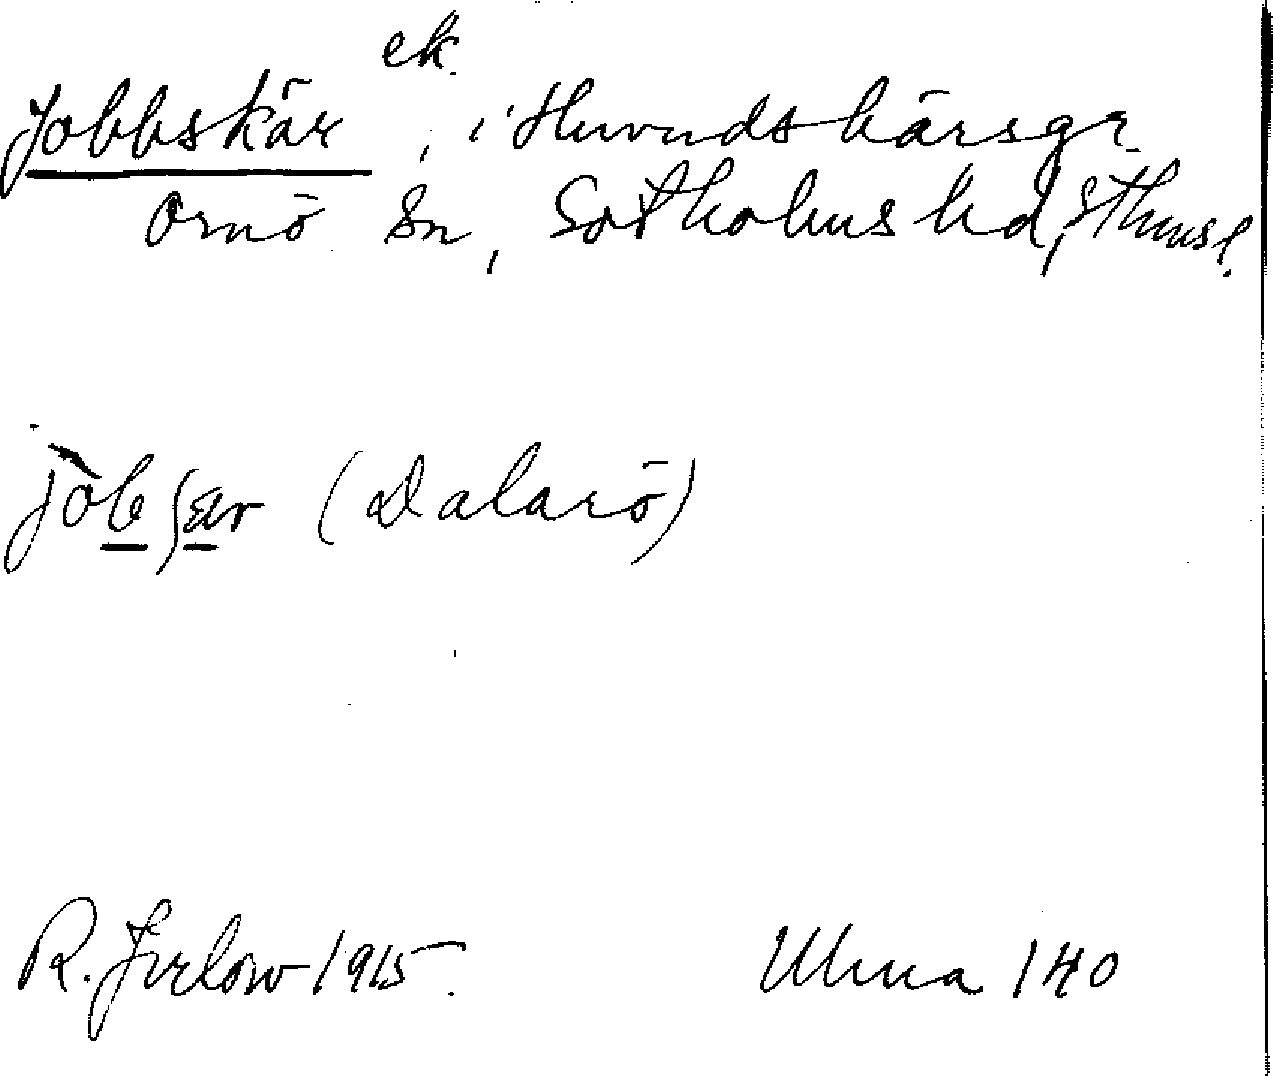 ek.
Jobbskär, i Huvudskärsgr.
Ornö sn, Sotholms hd, Sthmsl.
jòbʃær (Dalarö)
R. Jirlow 1915. Ulma 140